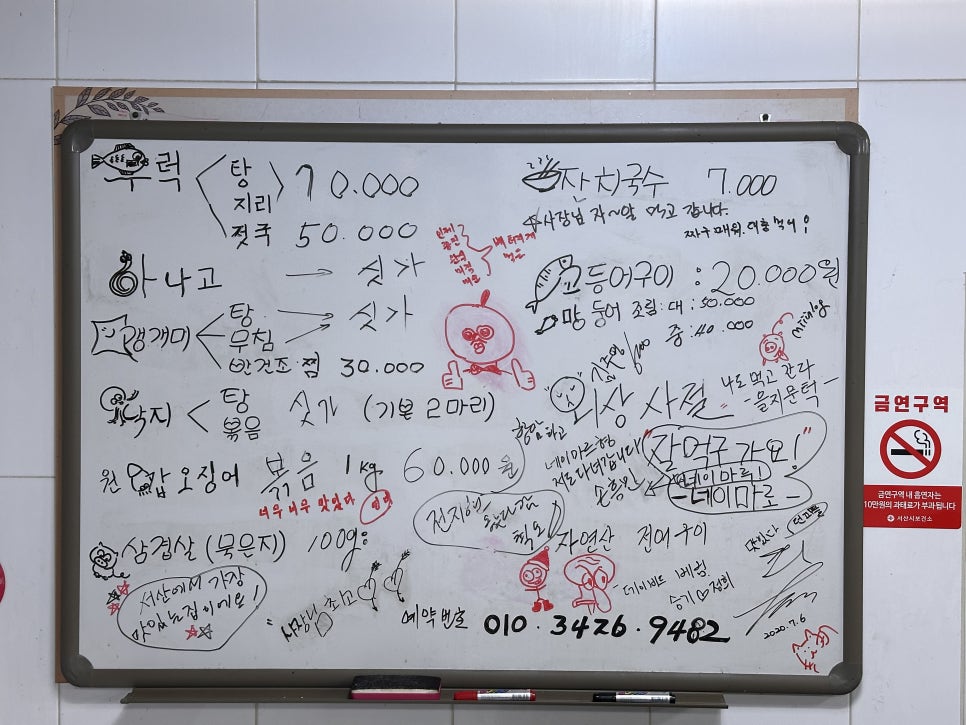 우럭 탕 지리 70.000
젓국 50.000
아나고 → 싯가
갱개미 탕 무침 → 싯가
반건조 찜 30.000
낙지 탕 볶음 싯가 (기본 2마리)
원 갑오징어 볶음 1kg 60.000 원
너무 너무 맛있다
삼겹살 (묵은지) 100g:
서산에서 가장
맛있는집 이에요!
사장님 최고
예약 번호 010.3426.9482
잔치국수 7.000
사장님 자~알 먹고 갑니다.
고등어구이 : 20.000원
망둥어 조림: 대: 50.000
중: 40.000
외상 사절
나도 먹고 간다
-을지문덕-
네이마르형
저도 다녀갑니다
손흥민
"잘먹구 가요!"
-네이마르-
전지현
왔다감
자연산 전어구이
데이비드 베컴
맛있다
2020.7.6
금연구역
금연구역 내 흡연자는
10만원의 과태료가 부과됩니다
서산시보건소